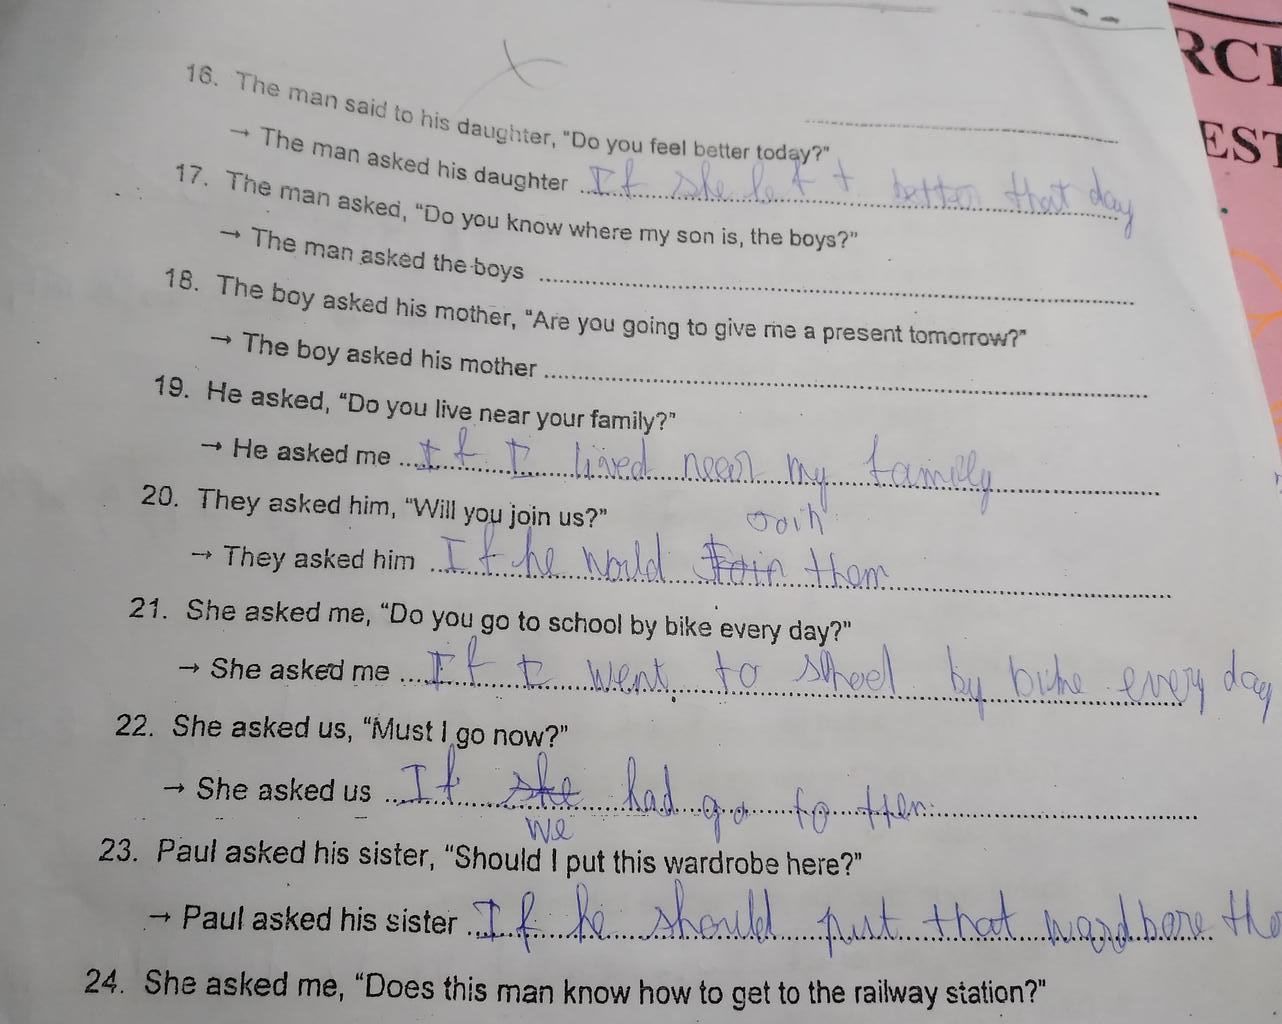 RCI
EST
16. The man said to his daughter, "Do you feel better today?"
→ The man asked his daughter If she felt better that day
17. The man asked, "Do you know where my son is, the boys?"
→ The man asked the boys
18. The boy asked his mother, "Are you going to give me a present tomorrow?"
→ The boy asked his mother
19. He asked, "Do you live near your family?"
→ He asked me If I lived near my family
20. They asked him, "Will you join us?"
→ They asked him If he would join them
21. She asked me, "Do you go to school by bike every day?"
→ She asked me If I went to school by bike every day
22. She asked us, "Must I go now?"
→ She asked us If she had go to then
we
23. Paul asked his sister, "Should I put this wardrobe here?"
→ Paul asked his sister If he should put that wardbore the
24. She asked me, "Does this man know how to get to the railway station?"